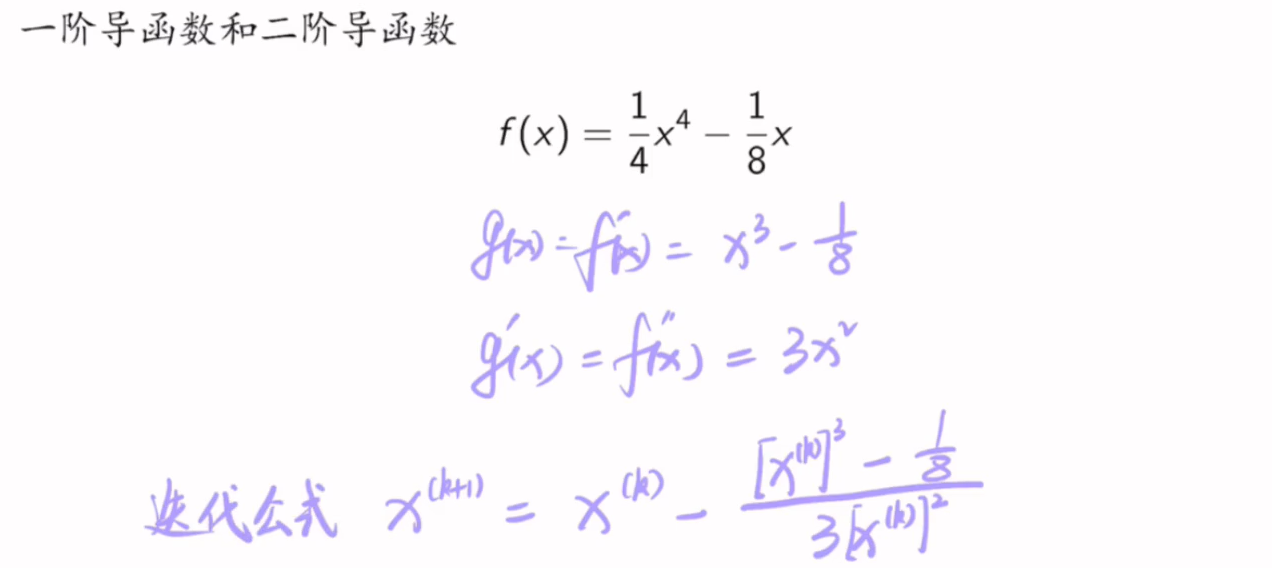 一阶导函数和二阶导函数
f(x) = \frac{1}{4}x^4 - \frac{1}{8}x
g(x) = f'(x) = x^3 - \frac{1}{8}
g'(x) = f''(x) = 3x^2
迭代公式 x^{(k+1)} = x^{(k)} - \frac{[x^{(k)}]^3 - \frac{1}{8}}{3[x^{(k)}]^2}